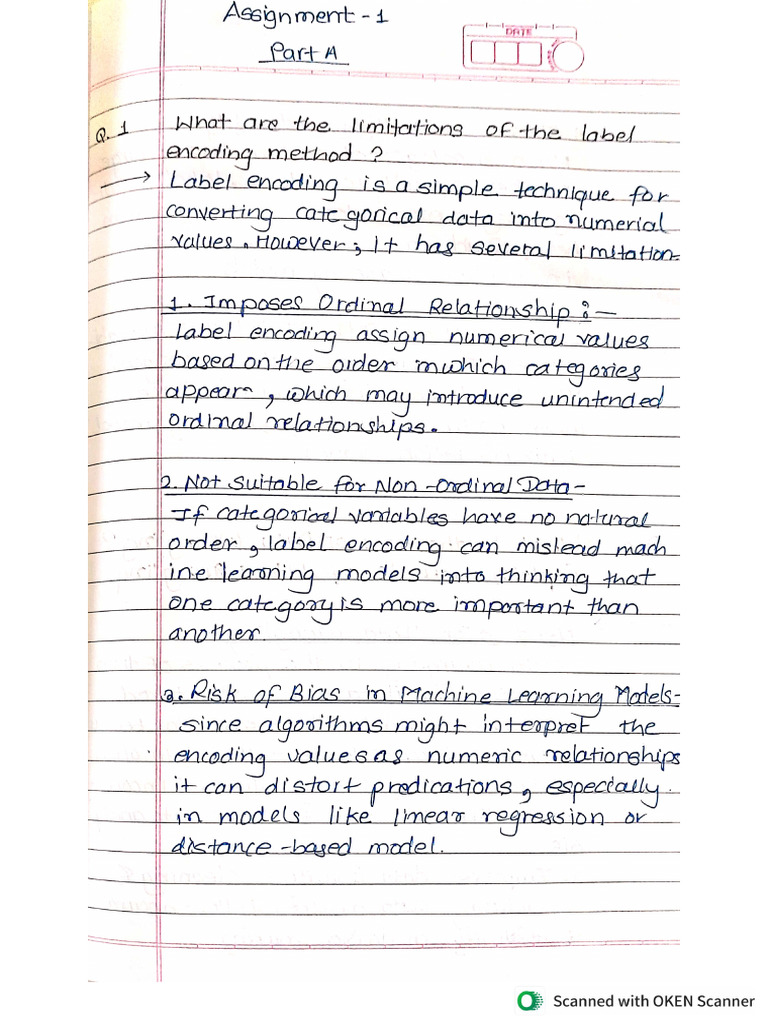 Assignment - 1
Part A
DATE
Q. 1 What are the limitations of the label
encoding method ?
→ Label encoding is a simple technique for
converting categorical data into numerial
values. However, it has several limitation-
1. Imposes Ordinal Relationship :-
Label encoding assign numerical values
based on the order in which categories
appear, which may introduce unintended
ordinal relationships.
2. Not Suitable for Non-Ordinal Data -
If categorical variables have no natural
order, label encoding can mislead mach
ine learning models into thinking that
one category is more important than
another.
3. Risk of Bias in Machine Learning Models-
since algorithms might interpret the
encoding values as numeric relationships
it can distort predications, especially
in models like linear regression or
distance-based model.
Scanned with OKEN Scanner